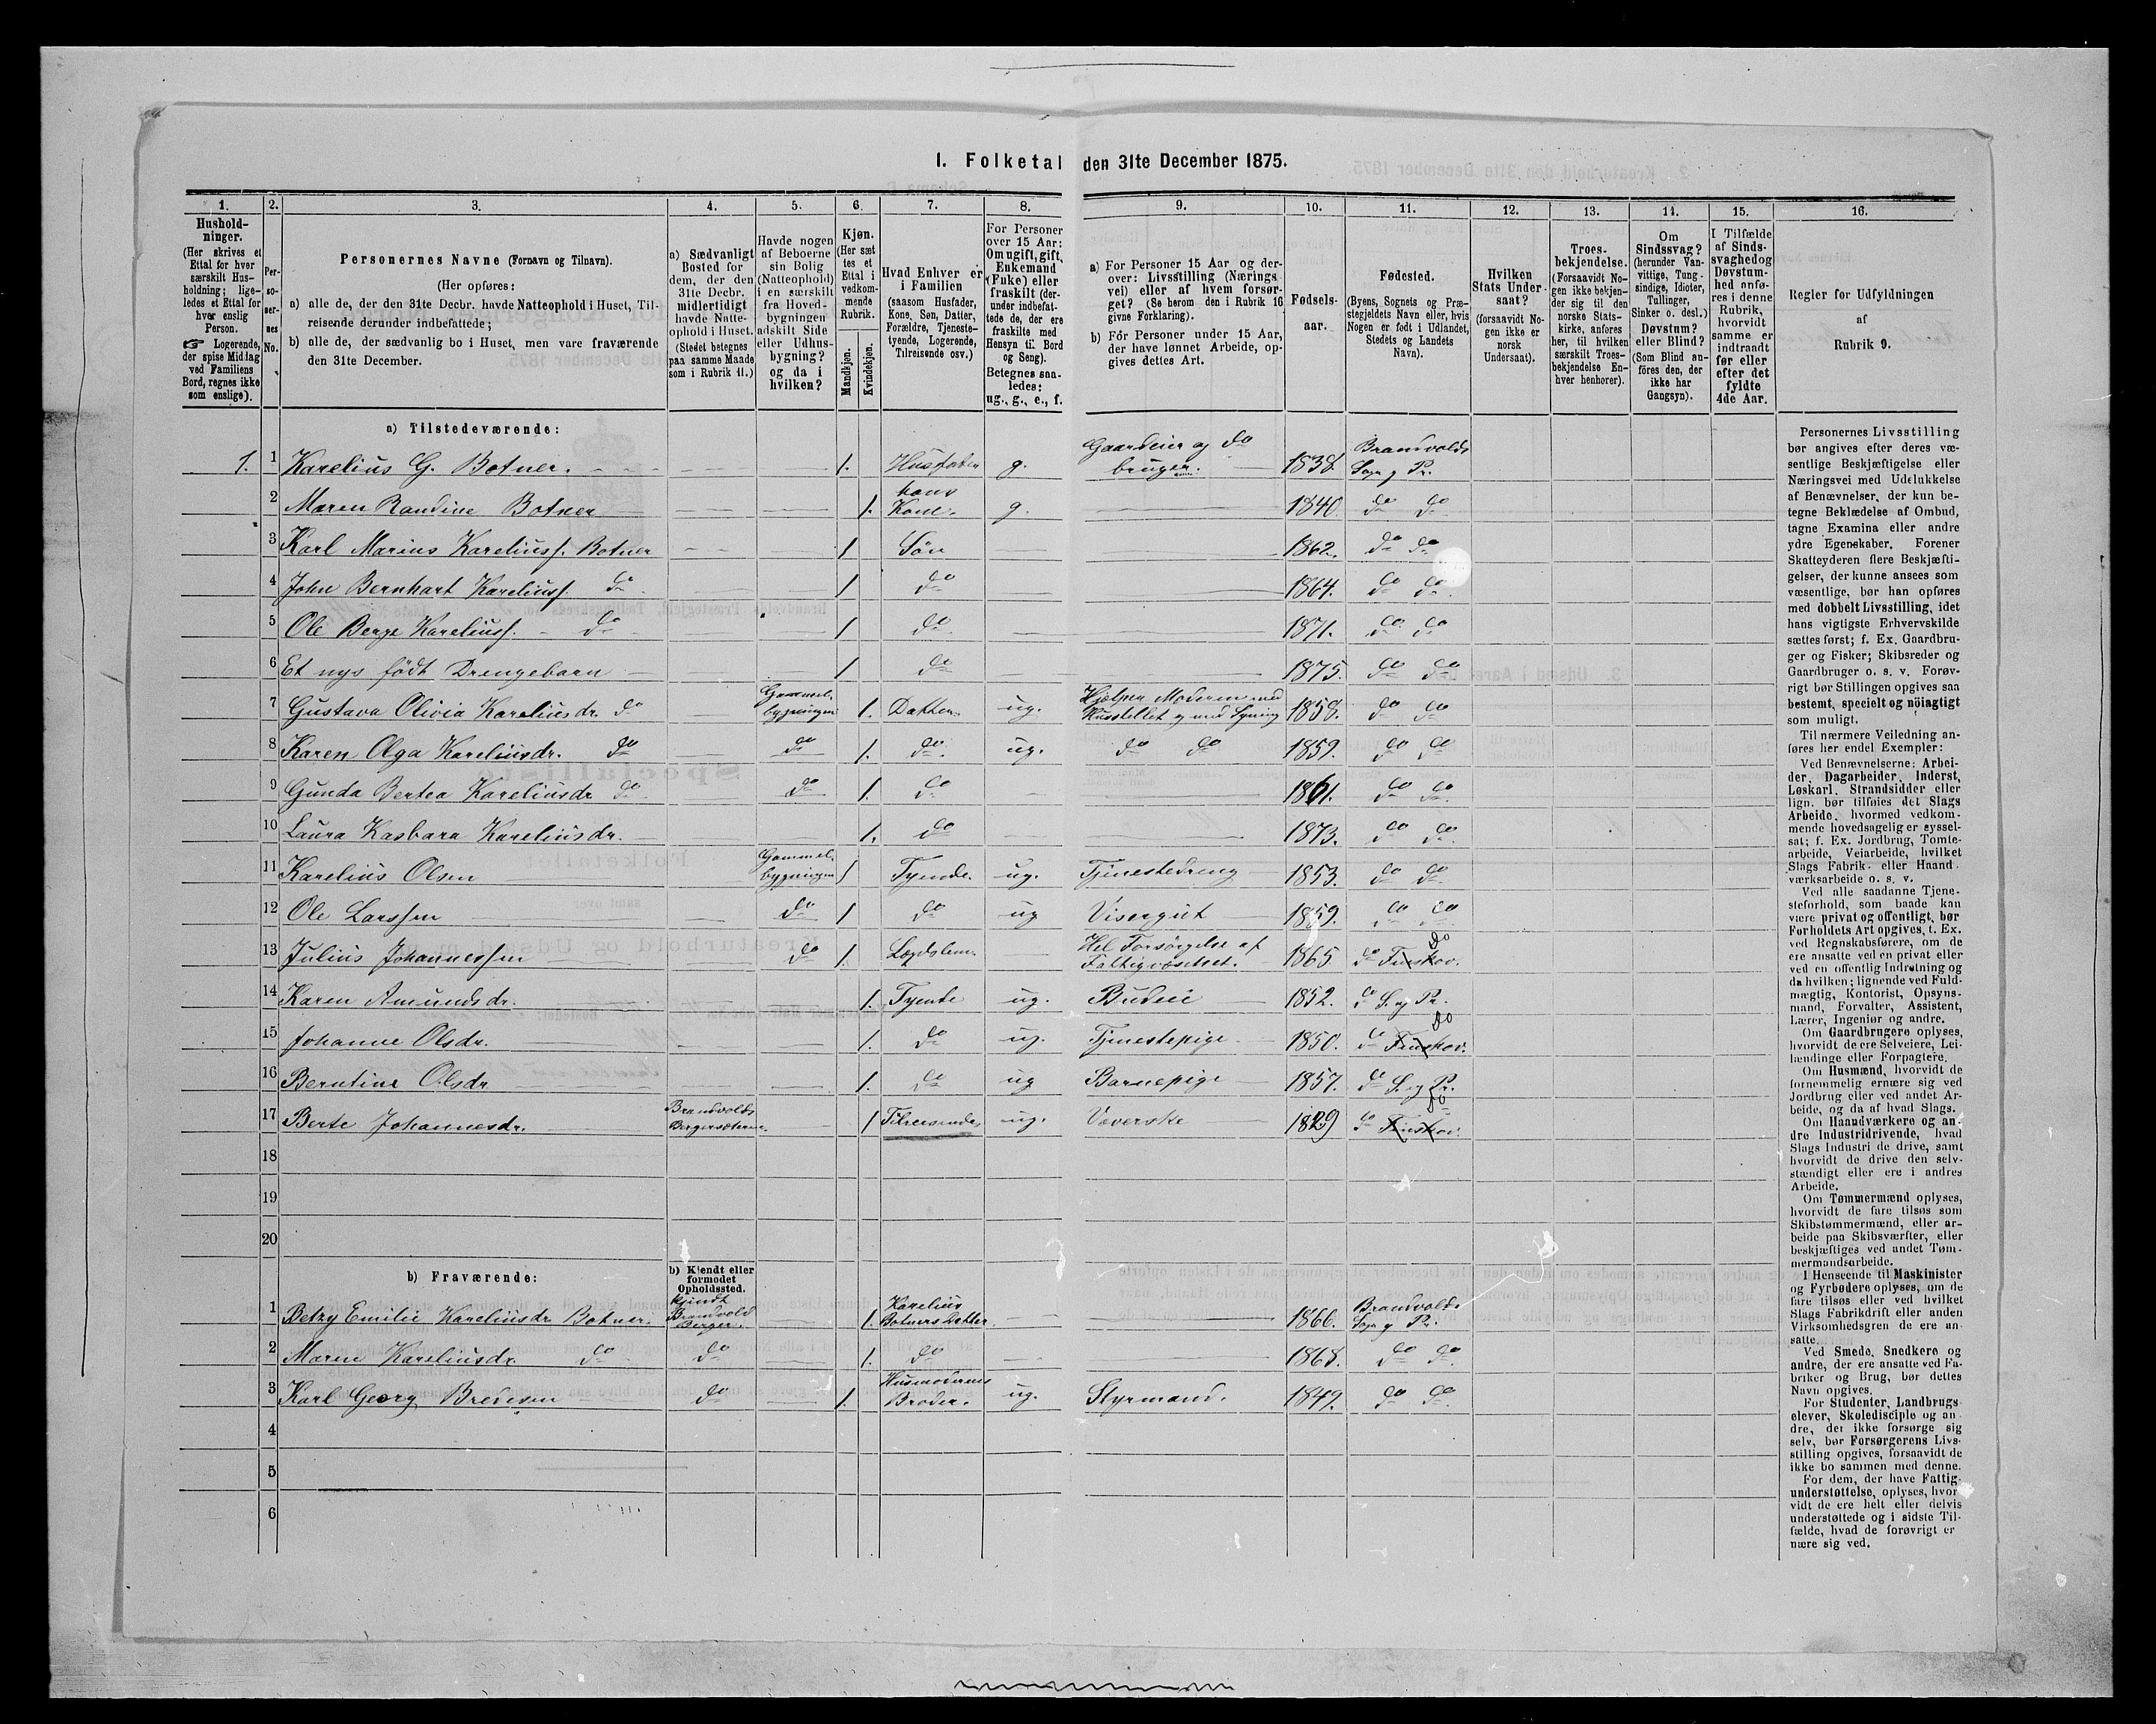 1. Folketal den 31te December 1875.
1. 2. 3. 4. 5. 6. 7. 8. 9. 10. 11. 12. 13. 14. 15. 16.
Hushold-
ninger.
(Her skrives et
Ettal for hver
særskilt Hus-
holdning; lige-
ledes et Ettal for
hver enslig
Person.
☞ Logerende,
der spise Middag
ved Familiens
Bord, regnes ikke
som enslige).
Per-
so-
ner-
nes
No.
Personernes Navne (Fornavn og Tilnavn).
(Her opføres:
a) alle de, der den 31te Decbr. havde Natteophold i Huset, Til-
reisende derunder indbefattede;
b) alle de, der sædvanlig bo i Huset, men vare fraværende
den 31te December.
a) Sædvanligt
Bosted for
dem, der den
31te Decbr.
midlertidigt
havde Natte-
ophold i Huset.
(Stedet betegnes
paa samme Maade
som i Rubrik 11.)
Havde nogen
af Beboerne
sin Bolig
(Natteophold)
i en særskilt
fra Hoved-
bygningen
adskilt Side
eller Udhus-
bygning?
og da i
hvilken?
Kjøn.
(Her sæt
tes et
Ettal i
vedkom-
mende
Rubrik.
Mandkjøn.
Kvindekjøn.
Hvad Enhver er
i Familien
(saasom Husfader,
Kone, Søn, Datter,
Forældre, Tjeneste-
tyende, Logerende,
Tilreisende osv.)
For Personer
over 15 Aar:
Om ugift, gift,
Enkemand
(Enke) eller
fraskilt (der-
under indbefat-
tede de, der ere
fraskilte med
Hensyn til Bord
og Seng).
Betegnes saa-
ledes:
ug., g., e., f.
a) For Personer 15 Aar og der-
over: Livsstilling (Nærings
vei) eller af hvem forsør-
get? (Se herom den i Rubrik 16
givne Forklaring).
b) För Personer under 15 Aar,
der have lønnet Arbeide, op-
gives dettes Art.
Fødsels-
aar.
Fødested.
(Byens, Sognets og Præ-
stegjeldets Navn eller, hvis
Nogen er født i Udlandet,
Stedets og Landets
Navn).
Hvilken
Stats Under-
saat?
(forsaavidt No-
gen ikke er
norsk
Undersaat).
Troes-
bekjendelse.
(Forsaavidt No-
gen ikke bekjen-
der sig til den
norske Stats-
kirke, anføres
her, til hvilken
særskilt Troes-
bekjendelse En-
hver henhører).
Om
Sindssvag?
(herunder Van-
vittige, Tung-
sindige, Idioter,
Tullinger,
Sinker o. desl.)
Døvstum?
eller Blind?
(Som Blind an-
føres den, der
ikke har
Gangsyn).
I Tilfælde
af Sinds-
svaghed og
Døvstum-
hed anfø-
res i denne
Rubrik,
hvorvidt
samme er
indtraadt
før eller
efter det
fyldte
4de Aar.
Regler for Udfyldningen
af
Rubrik 9.
a) Tilstedeværende:
1. 1 Karelius G. Botner. 1. Husfader g. Gaardeier og do bruger. 1838. Brandvolds Sogn og Pr.
2 Maren Randine Botner 1. hans Kone. g. 1840 do do
3 Karl Marius Kareliuss. Botner 1 Søn 1862. do do
4 John Bernhart Kareliuss. do 1 do 1864. do do.
5 Ole Berge Kareliuss. do 1 do 1871. do do
6 Et nys født Drengebarn 1 do 1875. do do
7 Gustava Olivia Kareliusdr. do Gammel-bygningen 1. Datter ug. Hjelper Moderen med Husstellet og med Syning 1858. do do
8 Karen Olga Kareliusdr. do do 1. do ug. do do 1859. do do
9 Gunda Bertea Kareliusdr do do 1. do 1861. do do.
10 Laura Kasbara Kareliusdr. 1. do 1873. do do.
11 Karelius Olsen Gammel-bygningen 1 Tyende. ug. Tjenestedreng 1853. do do
12 Ole Larssen do 1 do ug Visergut 1859. do do
13 Julius Johannessen do 1. Lægdslem Hel Forsørgelse af Fattigvæsenet. 1865 do Finskov. do
14 Karen Amundsdr. 1. Tyende ug. Budeie 1852. do S. og Pr.
15 Johanne Olsdr. 1. do ug. Tjenestepige 1850. do Finskov. do
16 Berntine Olsdr. 1. do ug Barnepige 1857. do S. og Pr.
17 Berte Johannesdr. Brandvolds Bergersæteren. 1 Tilreisende ug. Væverske 1829 do Finskov. do
18
19
20
b) Fraværende:
b) Kjendt eller
formodet
Opholdssted.
1 Betzy Emilie Kareliusdr Botner. kjendt Brandvold Berger. 1. Karelius Botners Datter 1866. Brandvolds Sogn og Pr.
2 Maren Kareliusdr. do do 1. do 1868. do do.
3 Karl Georg Bredesen do 1. Husmoderens Broder. ug. Styrmand. 1849. do do.
4
5
6
Personernes Livsstilling
bør angives efter deres væ-
sentlige Beskjæftigelse eller
Næringsvei med Udelukkelse
af Benævnelser, der kun be-
tegne Beklædelse af Ombud,
tagne Examina eller andre
ydre Egenskaber. Forener
Skatteyderen flere Beskjæfti-
gelser, der kunne ansees som
væsentlige, bør han opføres
med dobbelt Livsstilling, idet
hans vigtigste Erhvervskilde
sættes først; f. Ex. Gaardbru-
ger og Fisker; Skibsreder og
Gaardbruger o. s. v. Forøv-
rigt bør Stillingen opgives saa
bestemt, specielt og nöiagtigt
som muligt.
Til nærmere Veiledning an-
føres her endel Exempler:
Ved Benævnelserne: Arbei-
der, Dagarbeider, Inderst,
Løskarl, Strandsidder eller
lign. bør tilføies det Slags
Arbeide, hvormed vedkom-
mende hovedsagelig er syssel-
sat; f. Ex. Jordbrug, Tomte-
arbeide, Veiarbeide, hvilket
Slags Fabrik- eller Haand
værksarbeide o. s. v.
Ved alle saadanne Tjene-
steforhold, som baade kan
være privat og offentligt, bør
Forholdets Art opgives, t. Ex.
ved Regnskabsførere, om de
ere ansatte ved en privat eller
ved en offentlig Indretning og
da hvilken; lignende ved Fuld-
mægtig, Kontorist, Opsyns-
mand, Forvalter, Assistent,
Lærer, Ingeniør og andre.
Om Gaardbrugere oplyses,
hvorvidt de ere Selveiere, Lei-
lændinge eller Forpagtere.
Om Husmænd, hvorvidt de
fornemmelig ernære sig ved
Jordbrug eller ved andet Ar-
beide, og da af hvad Slags.
Om Haandværkere og an-
dre Industridrivende, hvad
Slags Industri de drive, samt
hvorvidt de drive den selv-
stændigt eller ere i andres
Arbeide.
Om Tømmermænd oplyses,
hvorvidt de fare tilsøs som
Skibstømmermænd, eller ar-
beide paa Skibsværfter, eller
beskjæftiges ved andet Tøm-
mermandsarbeide.
I Henseende til Maskinister
og Fyrbødere oplyses, om de
fare tilsøs eller ved hvilket
Slags Fabrikdrift eller anden
Virksomhedsgren de ere an-
satte.
Ved Smede, Snedkere og
andre, der ere ansatte ved Fa-
briker og Brug, bør dettes
Navn opgives.
For Studenter, Landbrugs
elever, Skoledisciple og an-
dre, der ikke forsørge sig
selv, bør Forsørgerens Livs-
stilling opgives, forsaavidt de
ikke bo sammen med denne.
For dem, der have Fattig-
understøttelse, oplyses, hvor
vidt de ere helt eller delvis
understøttede og i sidste Til-
fælde, hvad de forøvrigt er
nære sig ved.